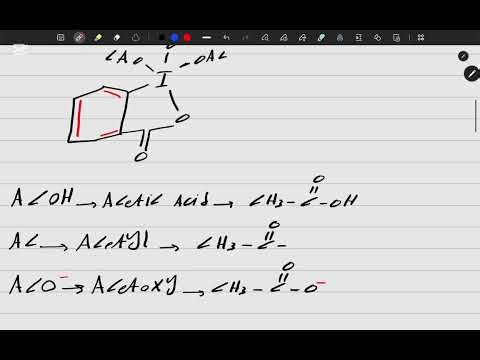 O
AcO OAc
I
O
O
O
AcOH → Acetic Acid → CH3 - C - OH
O
Ac → Acetyl → CH3 - C -
O
AcO⁻ → Acetoxy → CH3 - C - O⁻